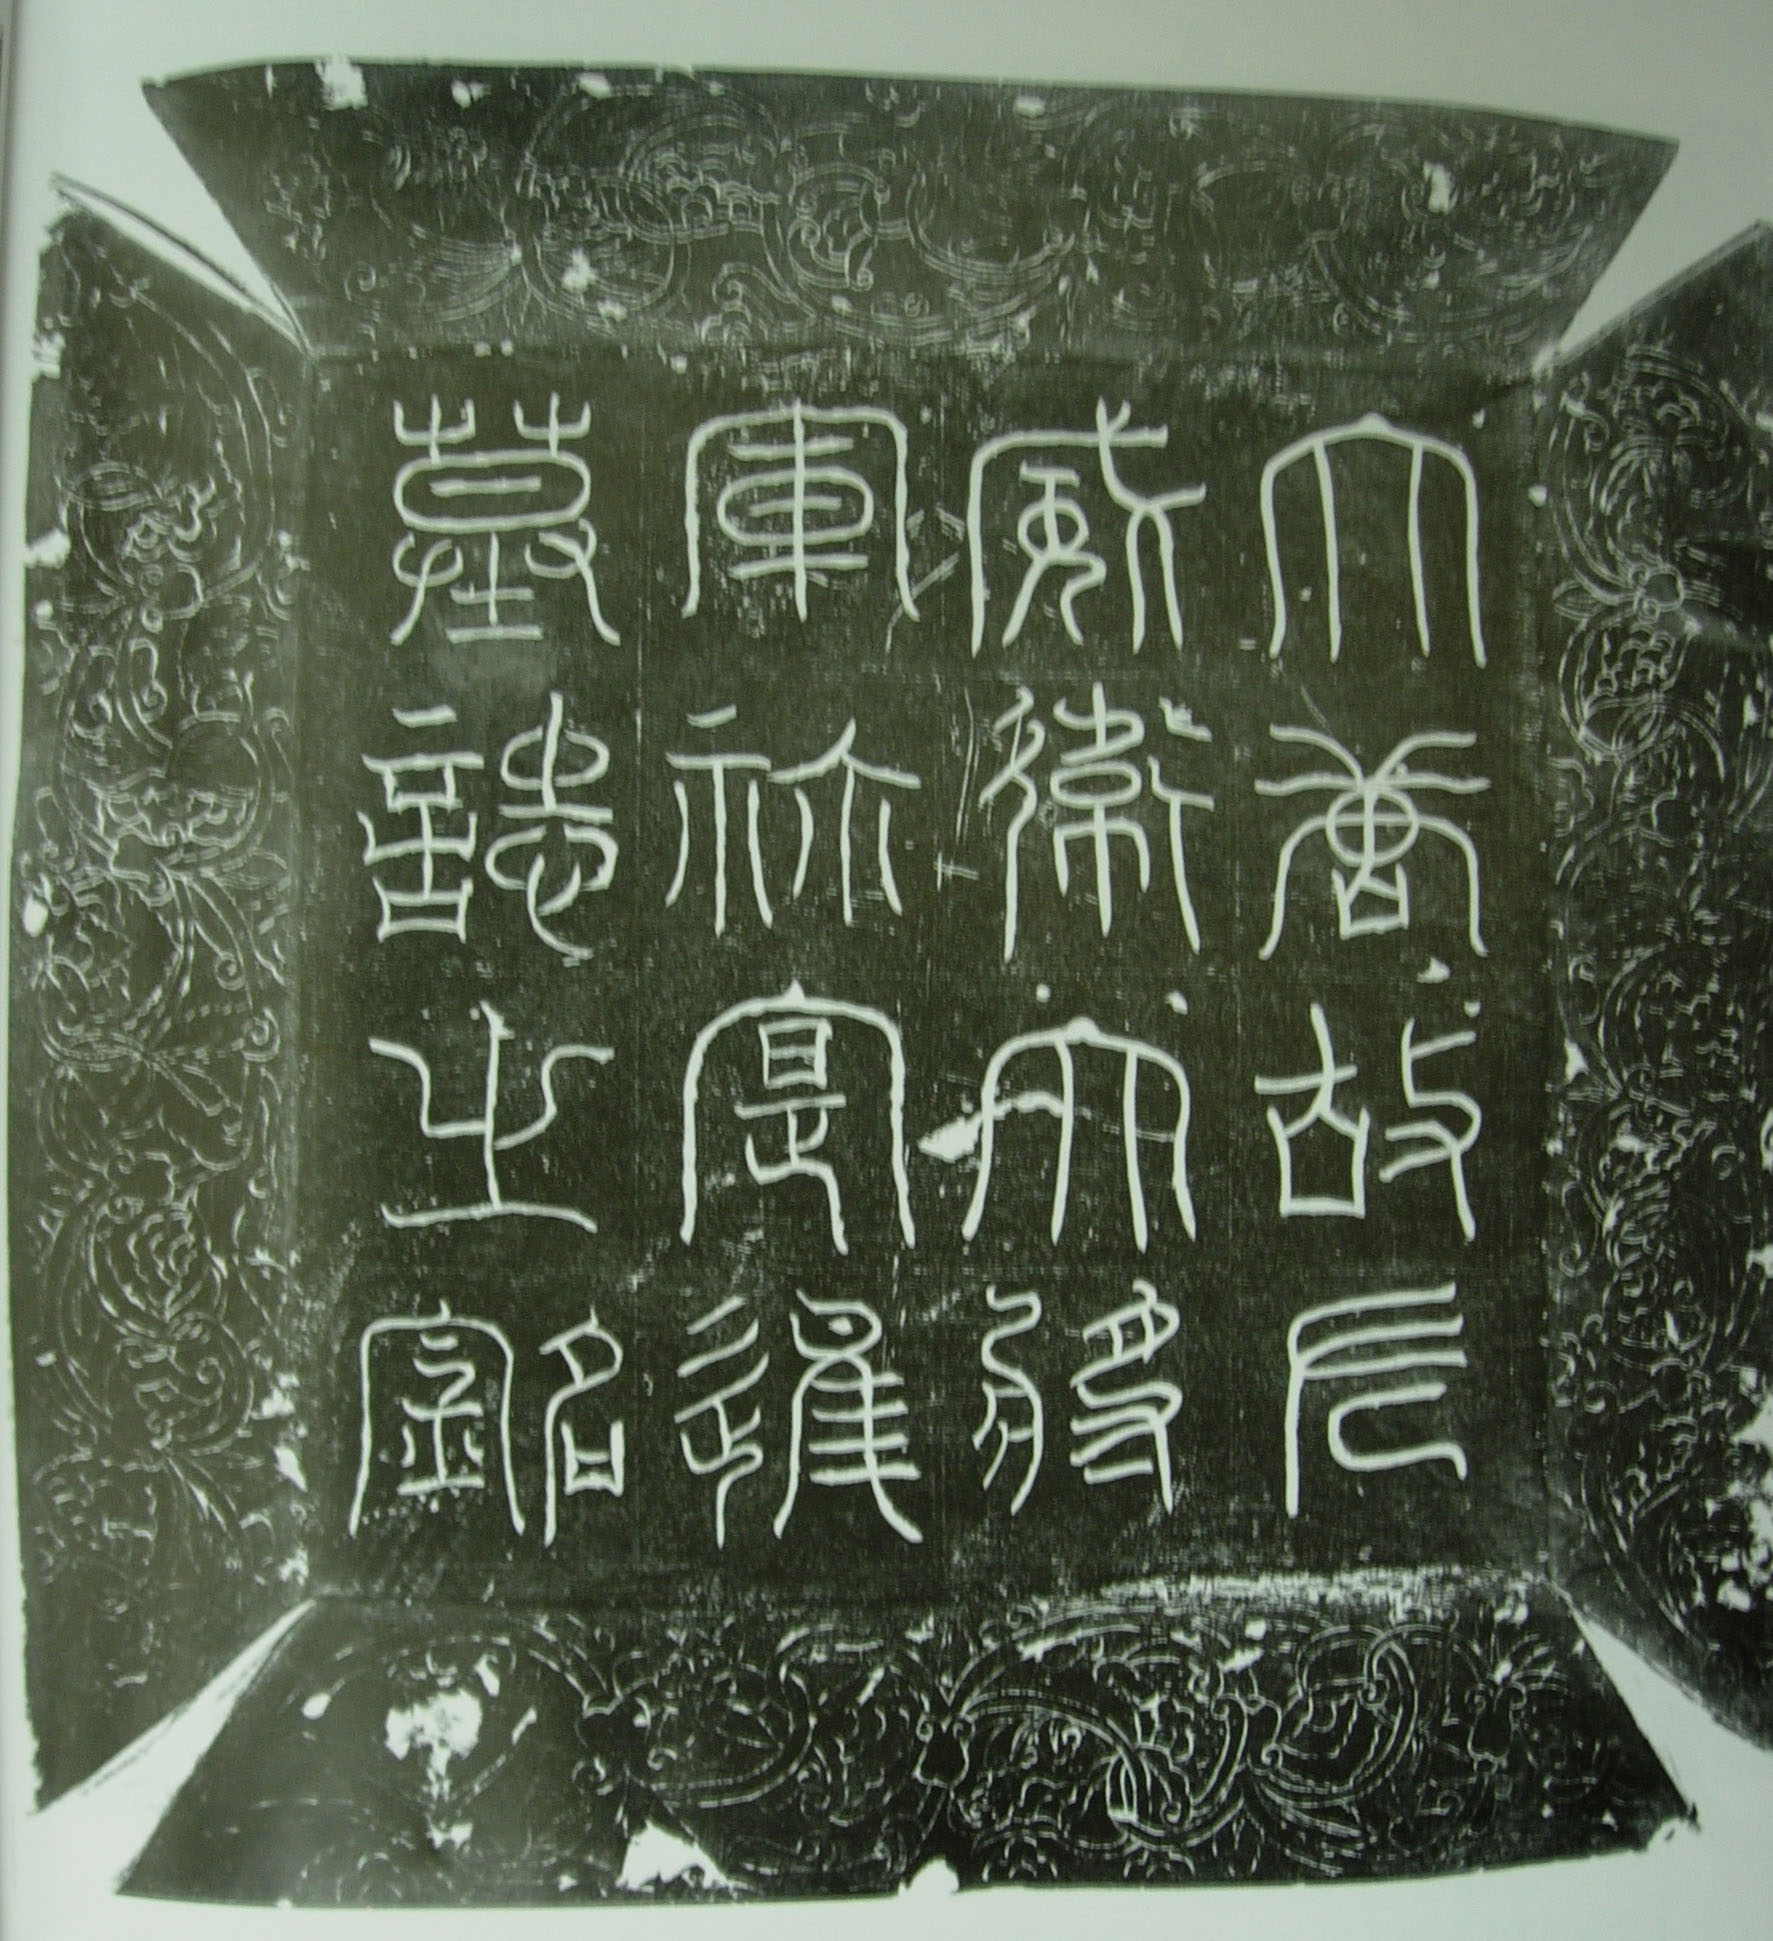 大唐故左
威衛大將
軍祢寔進
墓誌之銘